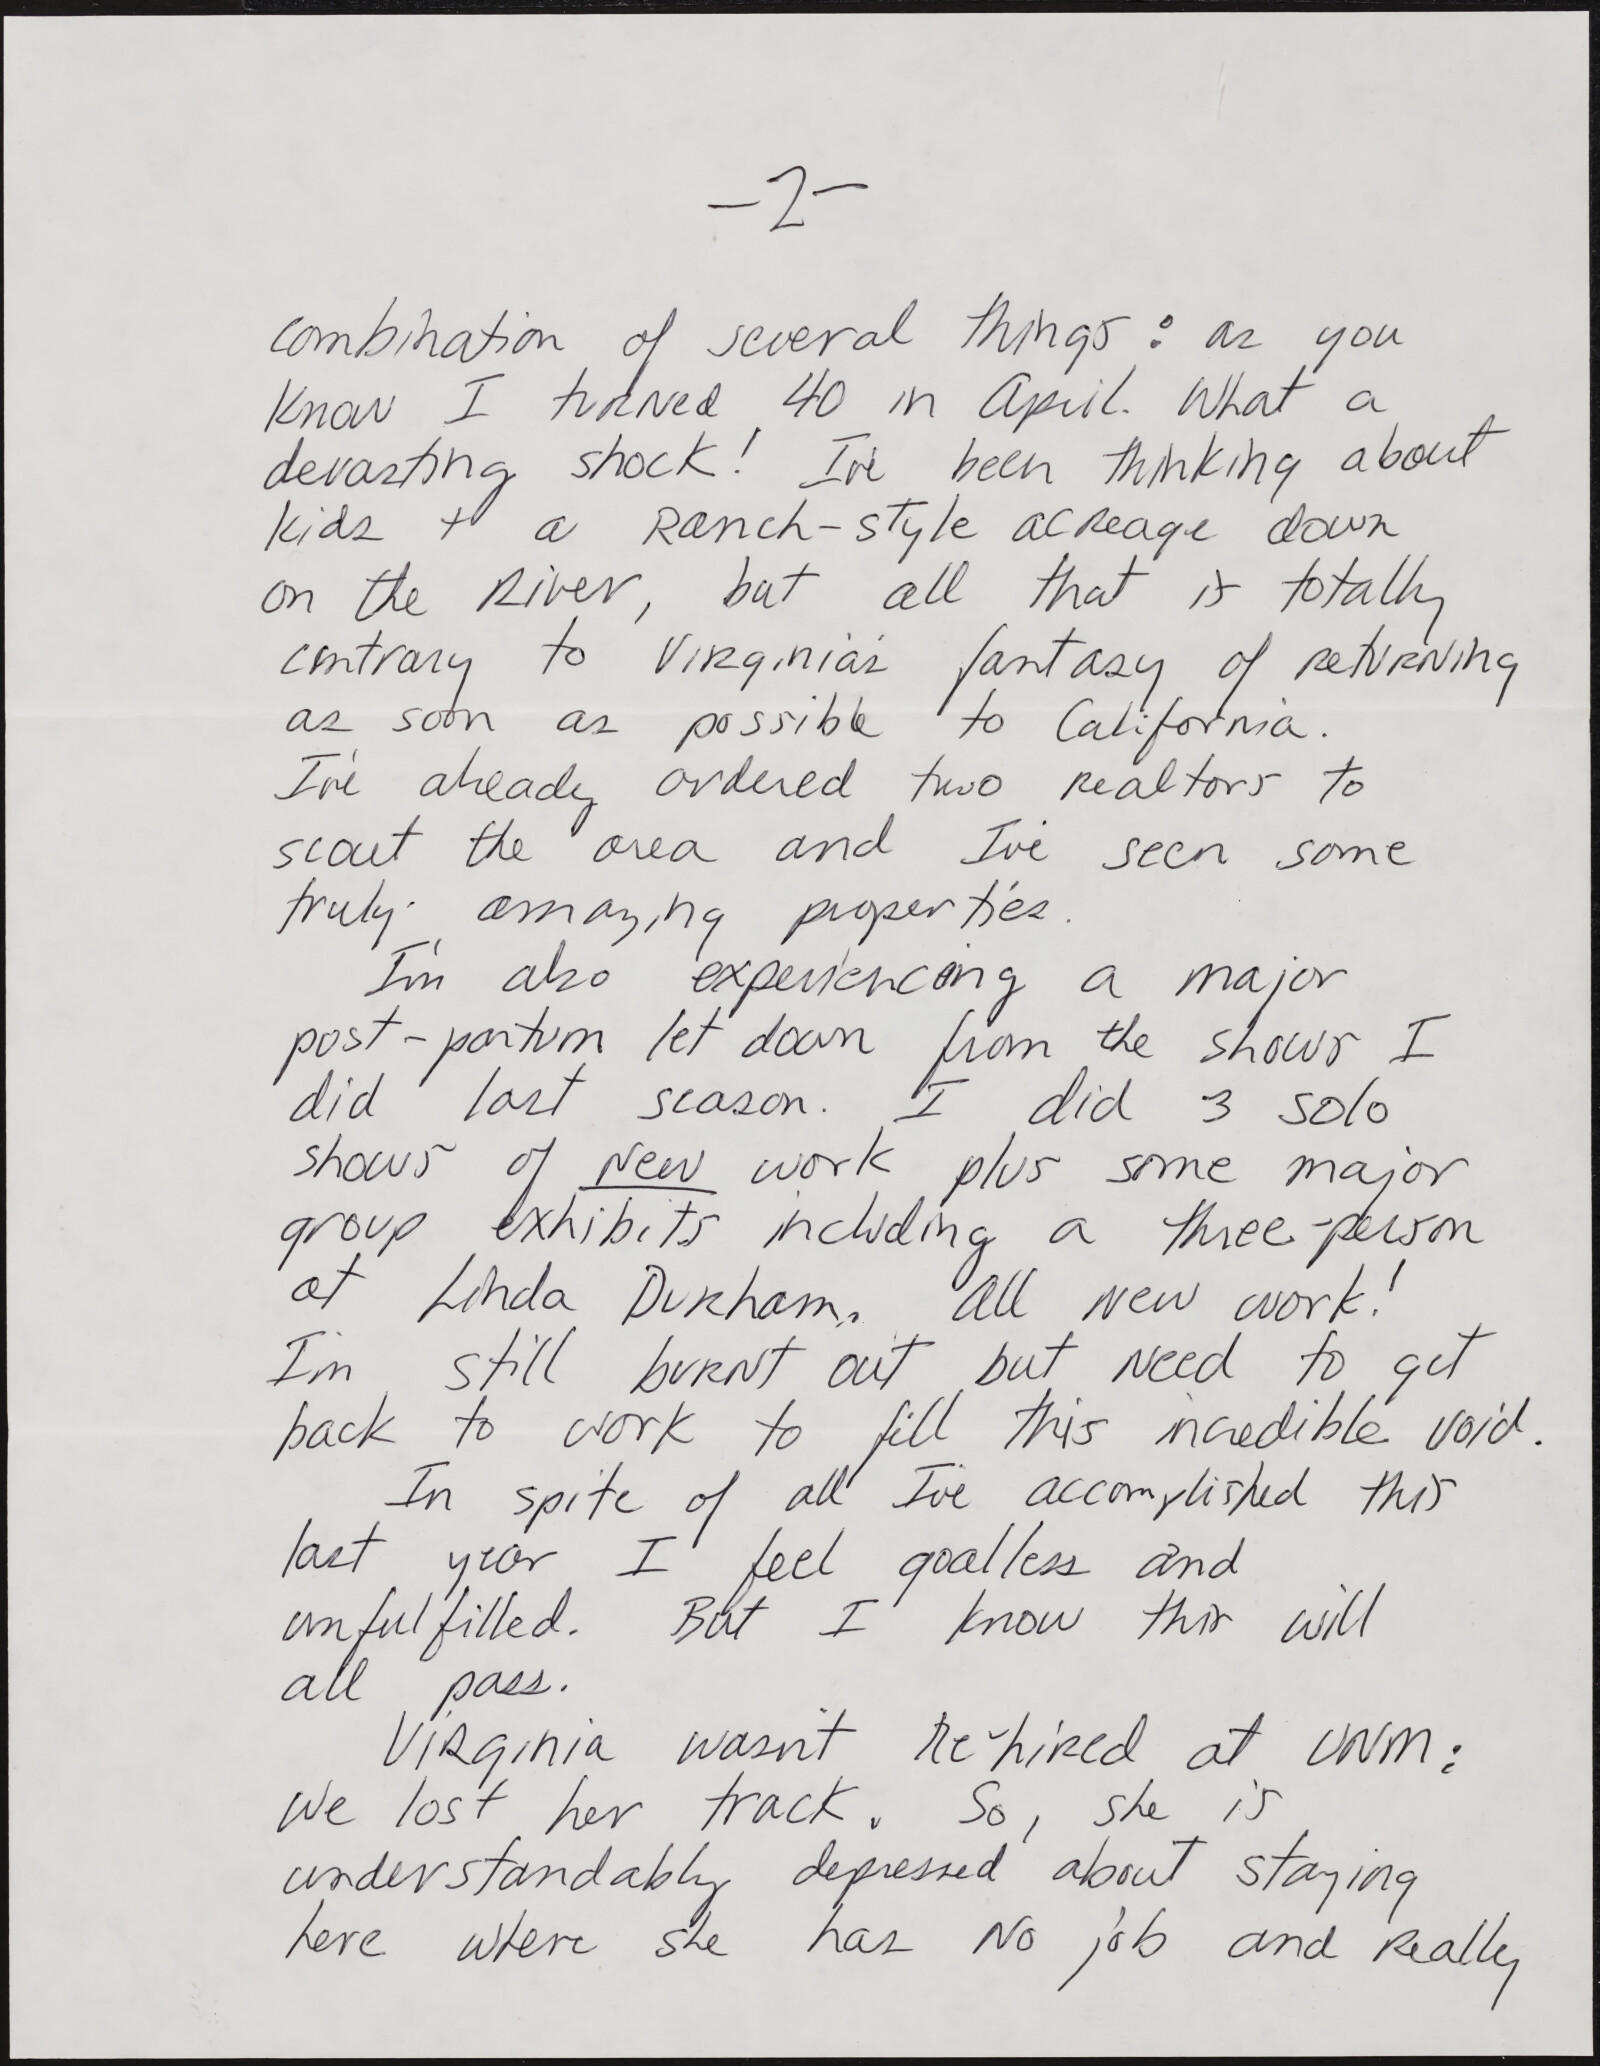 -2-
combination of several things: as you
know I turned 40 in April. What a
devasting shock! I've been thinking about
kids + a Ranch-style acreage down
on the River, but all that is totally
contrary to Virginia's fantasy of returning
as soon as possible to California.
I've already ordered two realtors to
scout the area and I've seen some
truly amazing properties.
I'm also experiencing a major
post-partum let down from the shows I
did last season. I did 3 solo
shows of New work plus some major
group exhibits including a three-person
at Linda Durham. All new work!
I'm still burnt out but need to get
back to work to fill this incredible void.
In spite of all I've accomplished this
last year I feel goalless and
unfulfilled. But I know this will
all pass.
Virginia wasn't Re-hired at UNM:
We lost her track. So, she is
understandably depressed about staying
here where she has no job and really